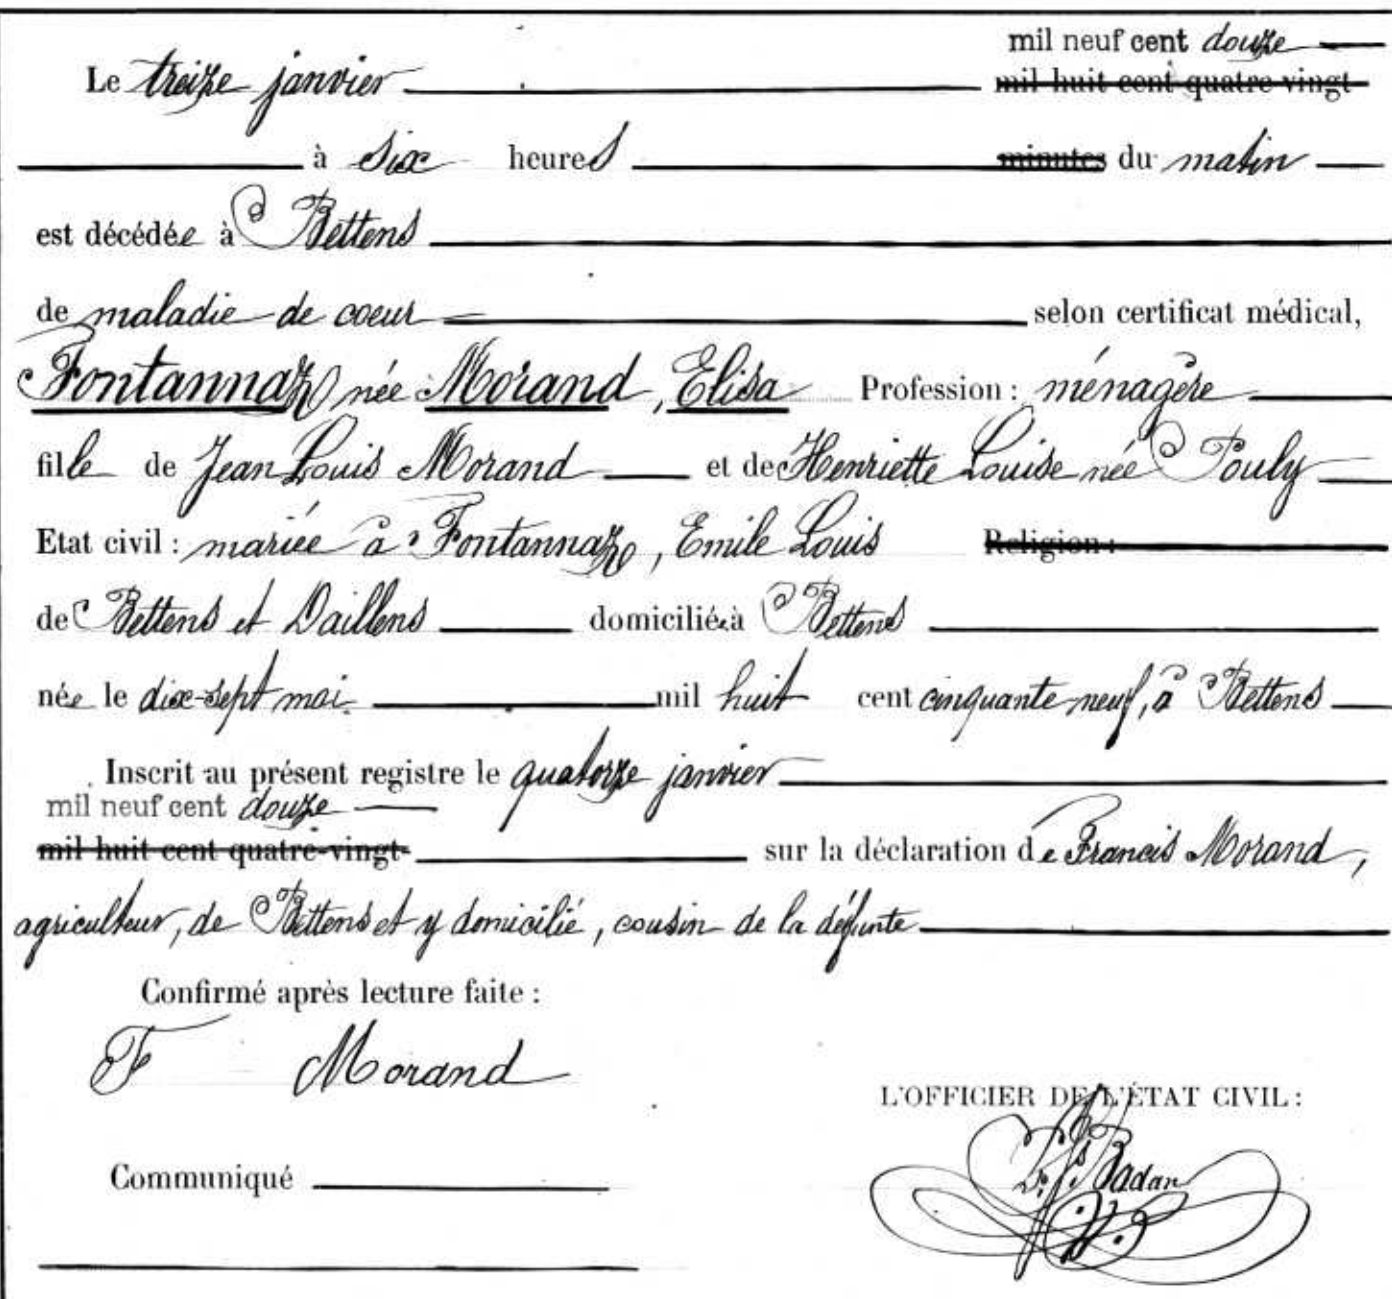 mil neuf cent douze
Le treize janvier mil huit cent quatre-vingt
à six heures minutes du matin
est décédée à Bettens
de maladie de coeur selon certificat médical,
Fontannaz née Morand, Elisa Profession : ménagère
fille de Jean Louis Morand et de Henriette Louise née Pouly
Etat civil : mariée à Fontannaz, Emile Louis Religion :
de Bettens et Daillens domiciliée à Bettens
née le dix-sept mai mil huit cent cinquante neuf, à Bettens
Inscrit au présent registre le quatorze janvier
mil neuf cent douze
mil huit cent quatre-vingt- sur la déclaration de Francis Morand,
agriculteur, de Bettens et y domicilié, cousin de la défunte
Confirmé après lecture faite :
F Morand
L'OFFICIER DE L'ÉTAT CIVIL :
Badan
Communiqué